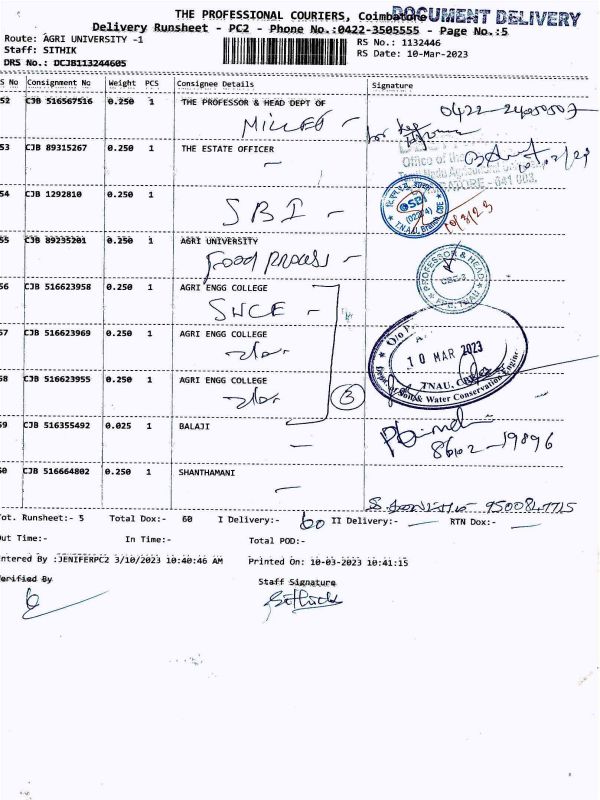 THE PROFESSIONAL COURIERS, Coimbatore
DOCUMENT DELIVERY
Delivery Runsheet - PC2 - Phone No.:0422-3505555 - Page No.:5
Route: AGRI UNIVERSITY -1
RS No.: 1132446
Staff: SITHIK
RS Date: 10-Mar-2023
DRS No.: DCJB113244605
S No Consignment No Weight PCS Consignee Details Signature
52 CJB 516567516 0.250 1 THE PROFESSOR & HEAD DEPT OF
MILLET
53 CJB 89315267 0.250 1 THE ESTATE OFFICER
Office of the
Tamil Nadu Agricultural
54 CJB 1292810 0.250 1
SBI
SBI
(02274)
T.N.A.U. Branch, CBE
10/3/23
55 CJB 89235201 0.250 1 AGRI UNIVERSITY
Food Process
PROFESSOR & HEAD
CBE-3
56 CJB 516623958 0.250 1 AGRI ENGG COLLEGE
SWCE
57 CJB 516623969 0.250 1 AGRI ENGG COLLEGE
10 MAR 2023
TNAU, CBE
Soil & Water Conservation Engine
58 CJB 516623955 0.250 1 AGRI ENGG COLLEGE
3
59 CJB 516355492 0.025 1 BALAJI
86102-19896
60 CJB 516664802 0.250 1 SHANTHAMANI
Tot. Runsheet:- 5 Total Dox:- 60 I Delivery:- 60 II Delivery:- RTN Dox:-
Out Time:- In Time:- Total POD:-
Entered By :JENIFERPC2 3/10/2023 10:40:46 AM Printed On: 10-03-2023 10:41:15
Verified By Staff Signature